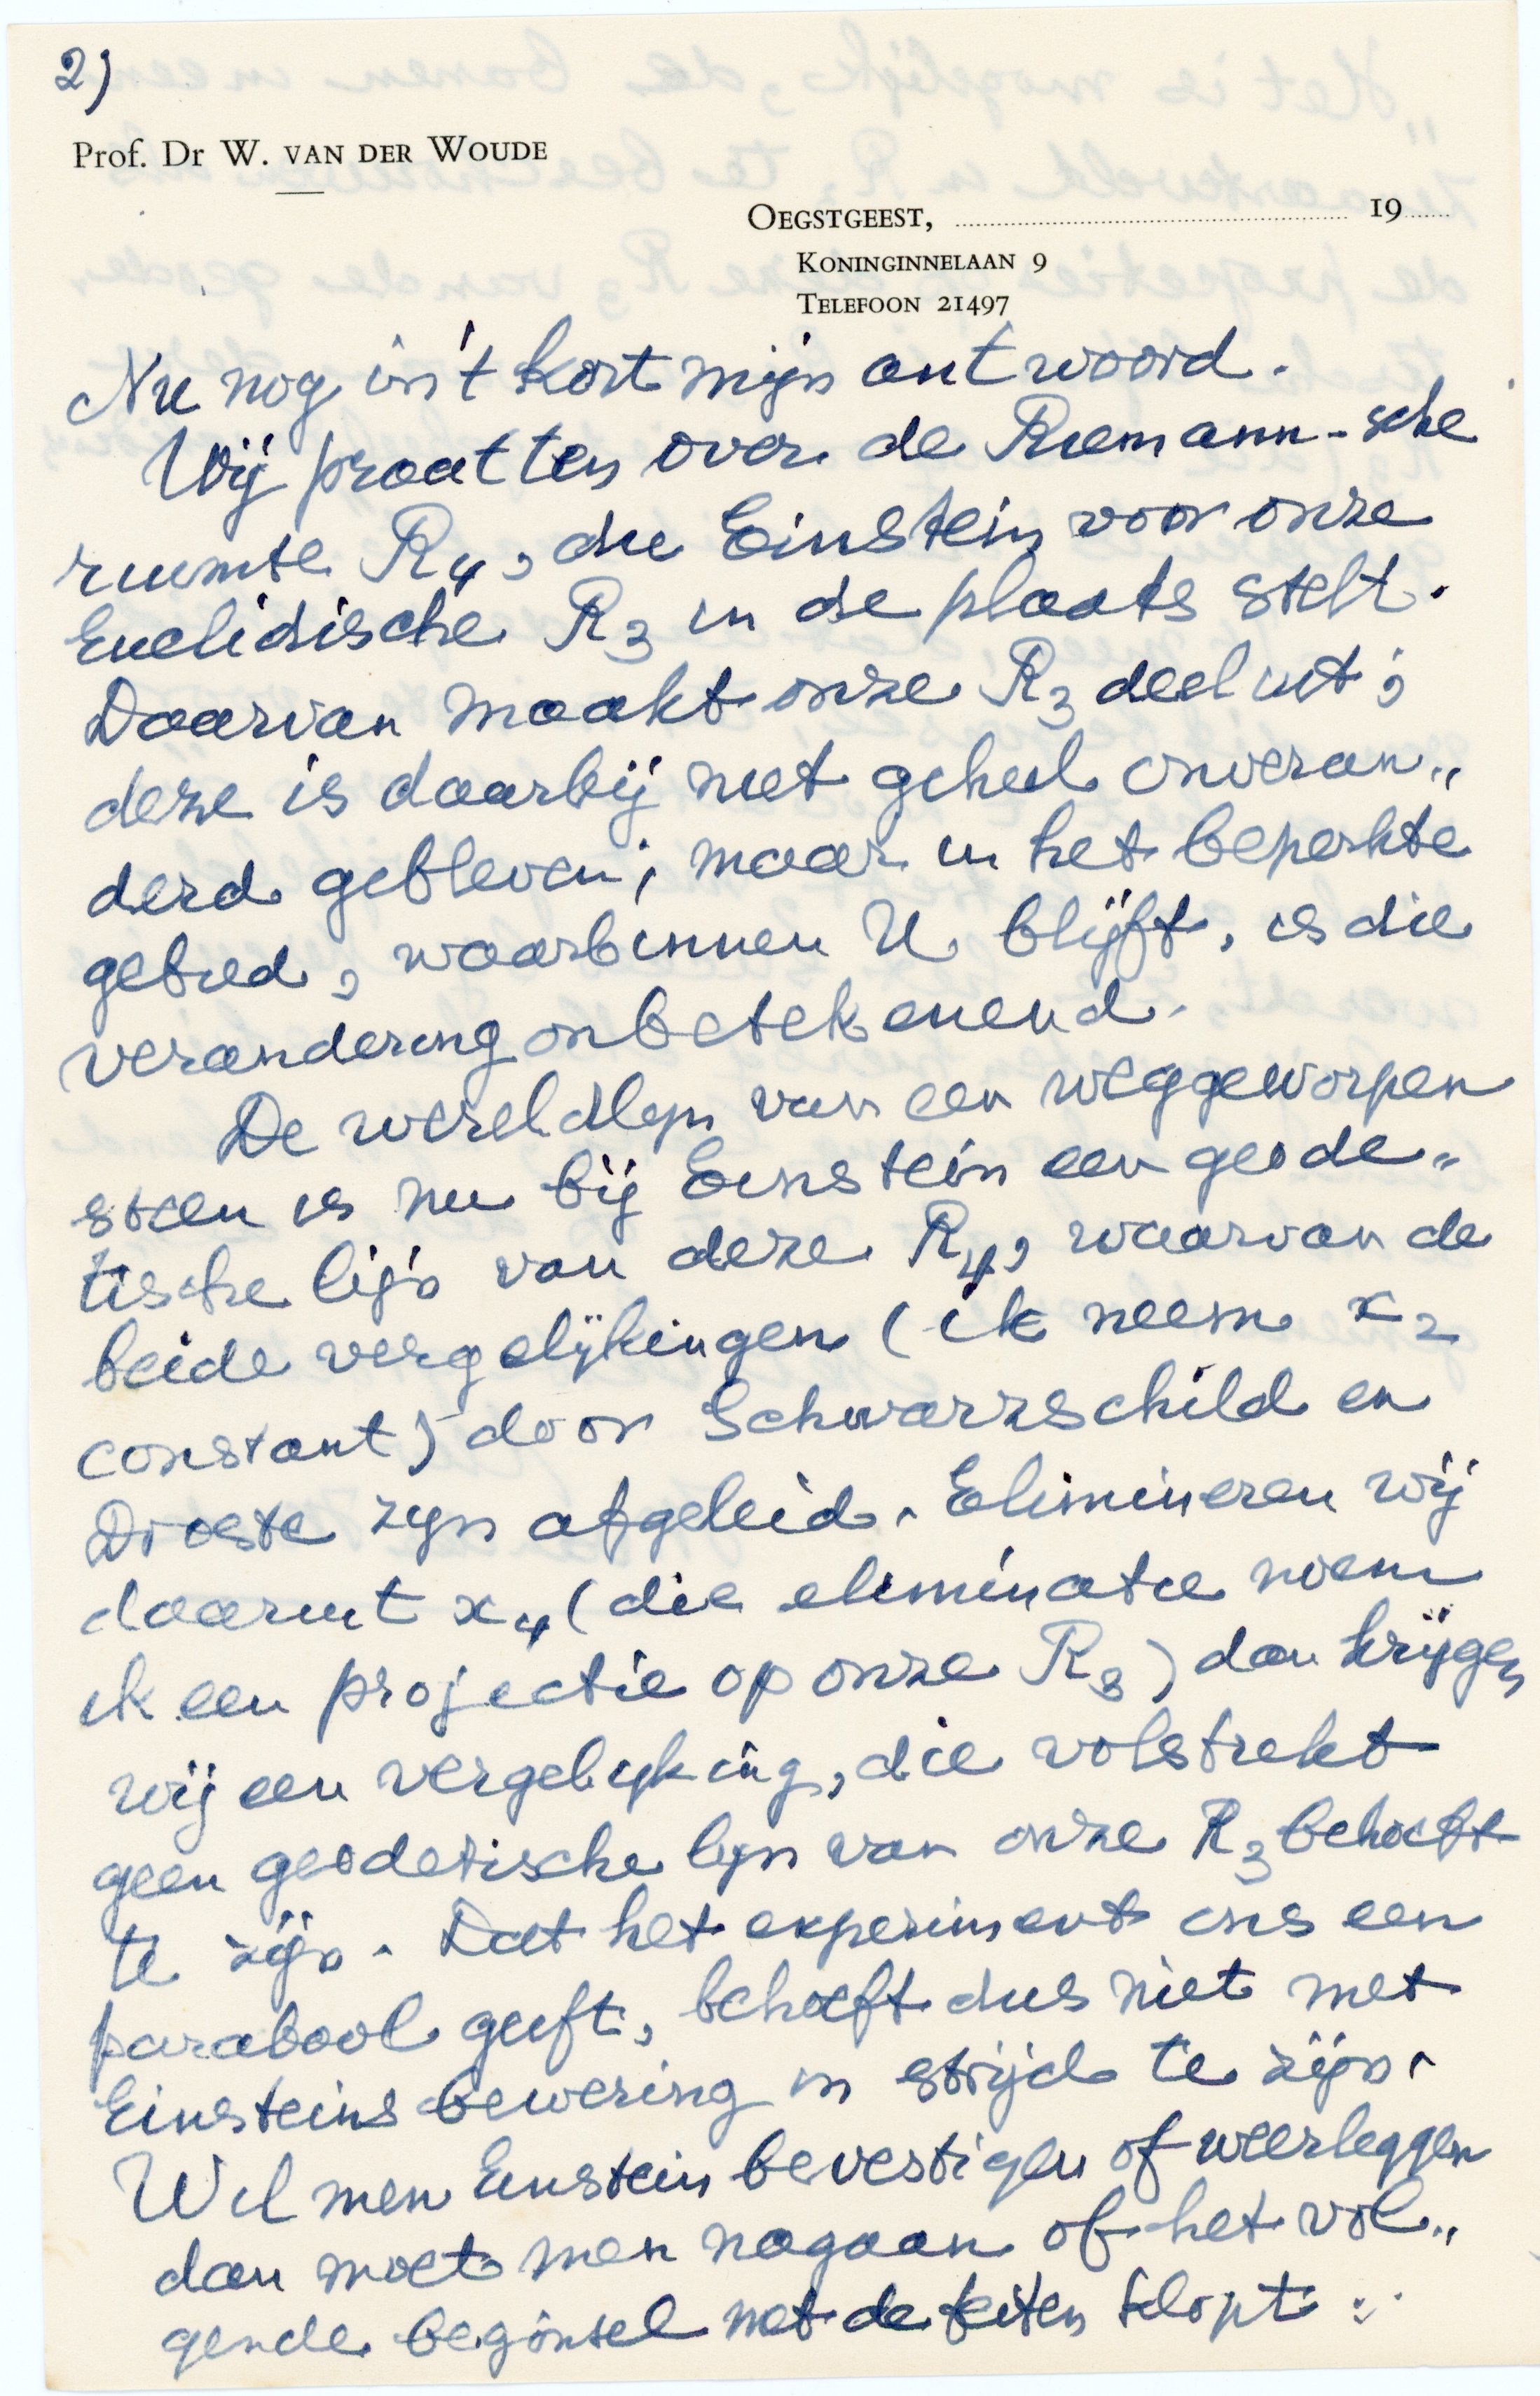 2)
Prof. Dr W. van der Woude
Oegstgeest, 19
Koninginnelaan 9
Telefoon 21497
Nu nog in 't kort mijn antwoord.
Wij praatten over de Riemann-sche
ruimte R₄, die Einstein voor onze
Euclidische R₃ in de plaats stelt.
Daarvan maakt onze R₃ deel uit;
deze is daarbij niet geheel onveran„
derd gebleven; maar in het beperkte
gebied, waarbinnen U blijft, is die
verandering onbetekenend.
De wereldlijn van een weggeworpen
steen is nu bij Einstein een geode„
tische lijn van deze R₄, waarvan de
beide vergelijkingen (ik neem x₂
constant) door Schwarzschild en
Droste zijn afgeleid. Elimineren wij
daaruit x₄ (die eliminatie noem
ik een projectie op onze R₃) dan krijgen
wij een vergelijking, die volstrekt
geen geodetische lijn van onze R₃ behoeft
te zijn. Dat het experiment ons een
parabool geeft, behoeft dus niet met
Einsteins bewering in strijd te zijn.
Wil men Einstein bevestigen of weerleggen
dan moet men nagaan of het vol„
gende beginsel met de feiten klopt: